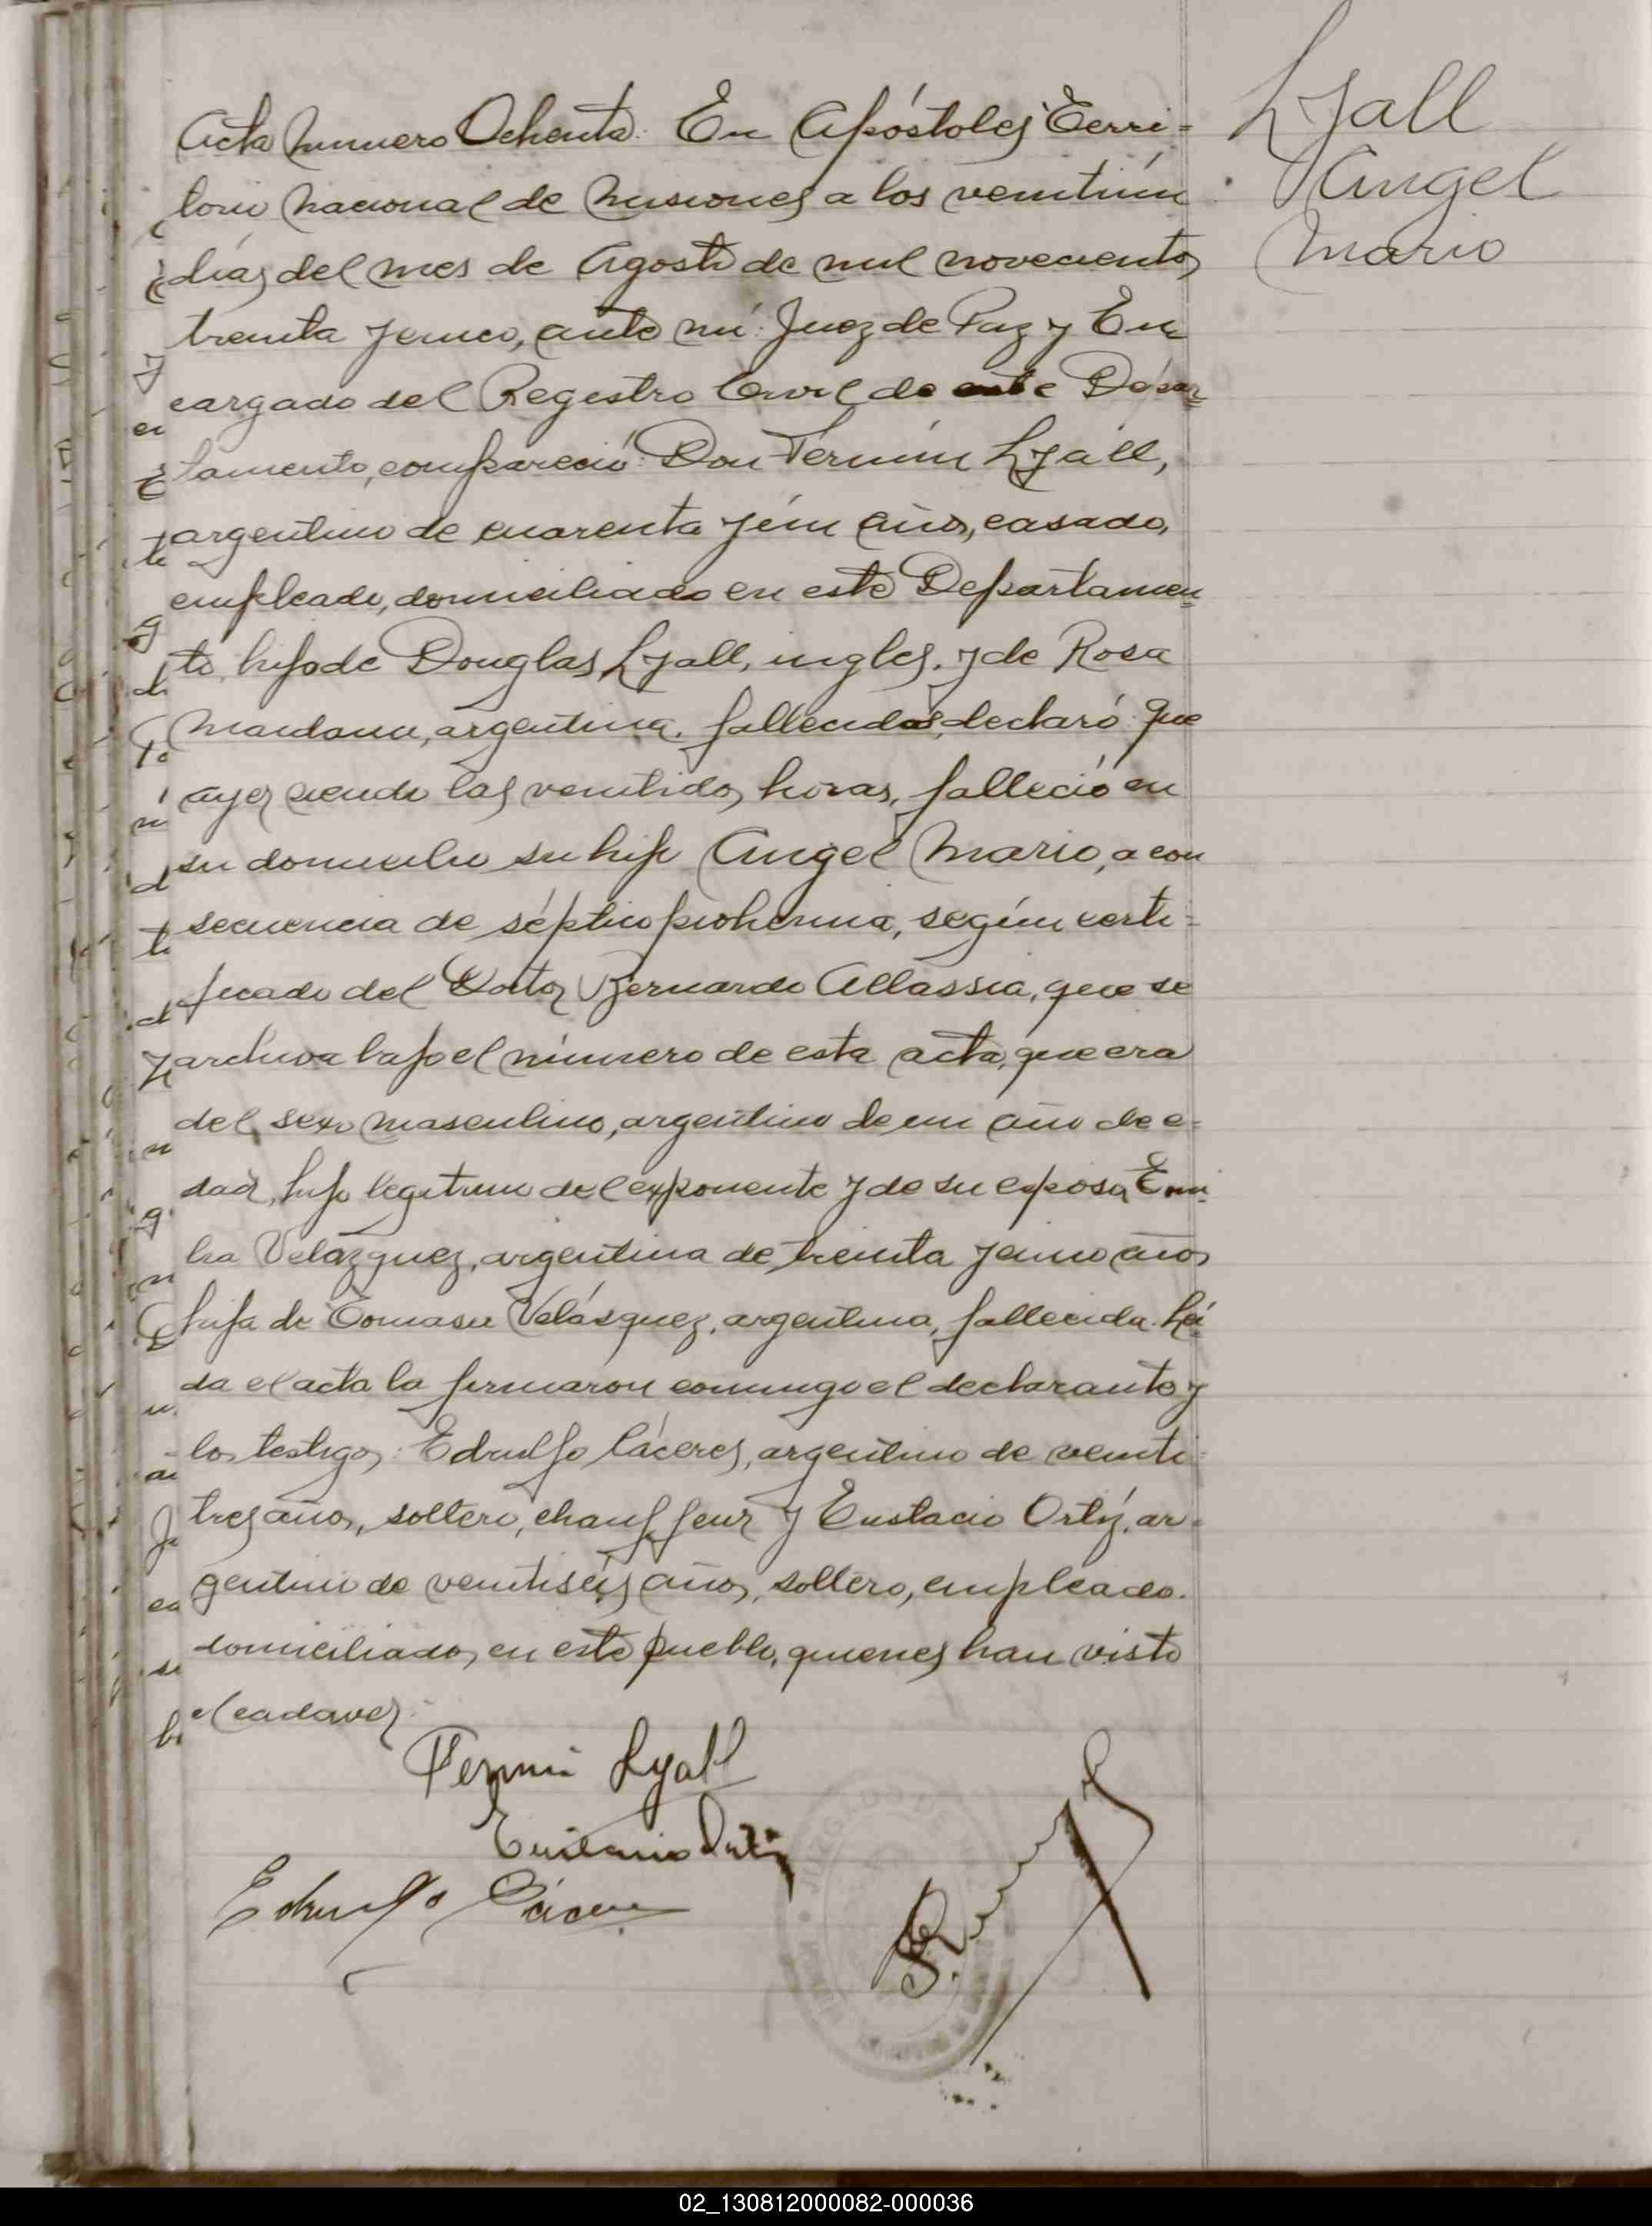 Lyall
Angel
Mario
Acta Numero Ochenta: En Apóstoles Terri=
torio Nacional de Misiones a los veintiún
días del mes de Agosto de mil novecientos
treinta y cinco, ante mí: Juez de Paz y En
cargado del Registro Civil de este Depar=
tamento, compareció: Don Fermín Lyall,
argentino de cuarenta y un años, casado,
empleado, domiciliado en este Departamen
to, hijo de Douglas Lyall, ingles, y de Rosa
argentina, fallecidos, declaró: Que
ayer siendo las veintidos horas, falleció en
su domicilio su hijo Angel Mario, a con
secuencia de séptico piohemia, según certi=
ficado del Doctor Bernardo Allassia, que se
archiva bajo el número de esta acta, que era
del sexo masculino, argentino de un año de e=
dad, hijo legitimo del exponente y de su esposa Emi
lia Velázquez, argentina de treinta y cinco años
hija de Tomasa Velásquez, argentina, fallecida. Leí
da el acta la firmaron conmigo el declarante y
los testigos: Edrulfo Cáceres, argentino de veinti=
tres años, soltero, chauffeur y Eustacio Ortíz, ar=
gentino de veintiséis años, soltero, empleado.
domiciliados en este pueblo, quienes han visto
el cadaver.
Fermin Lyall
Eustacio Ortiz
Edrulfo Cáceres
02_130812000082-000036